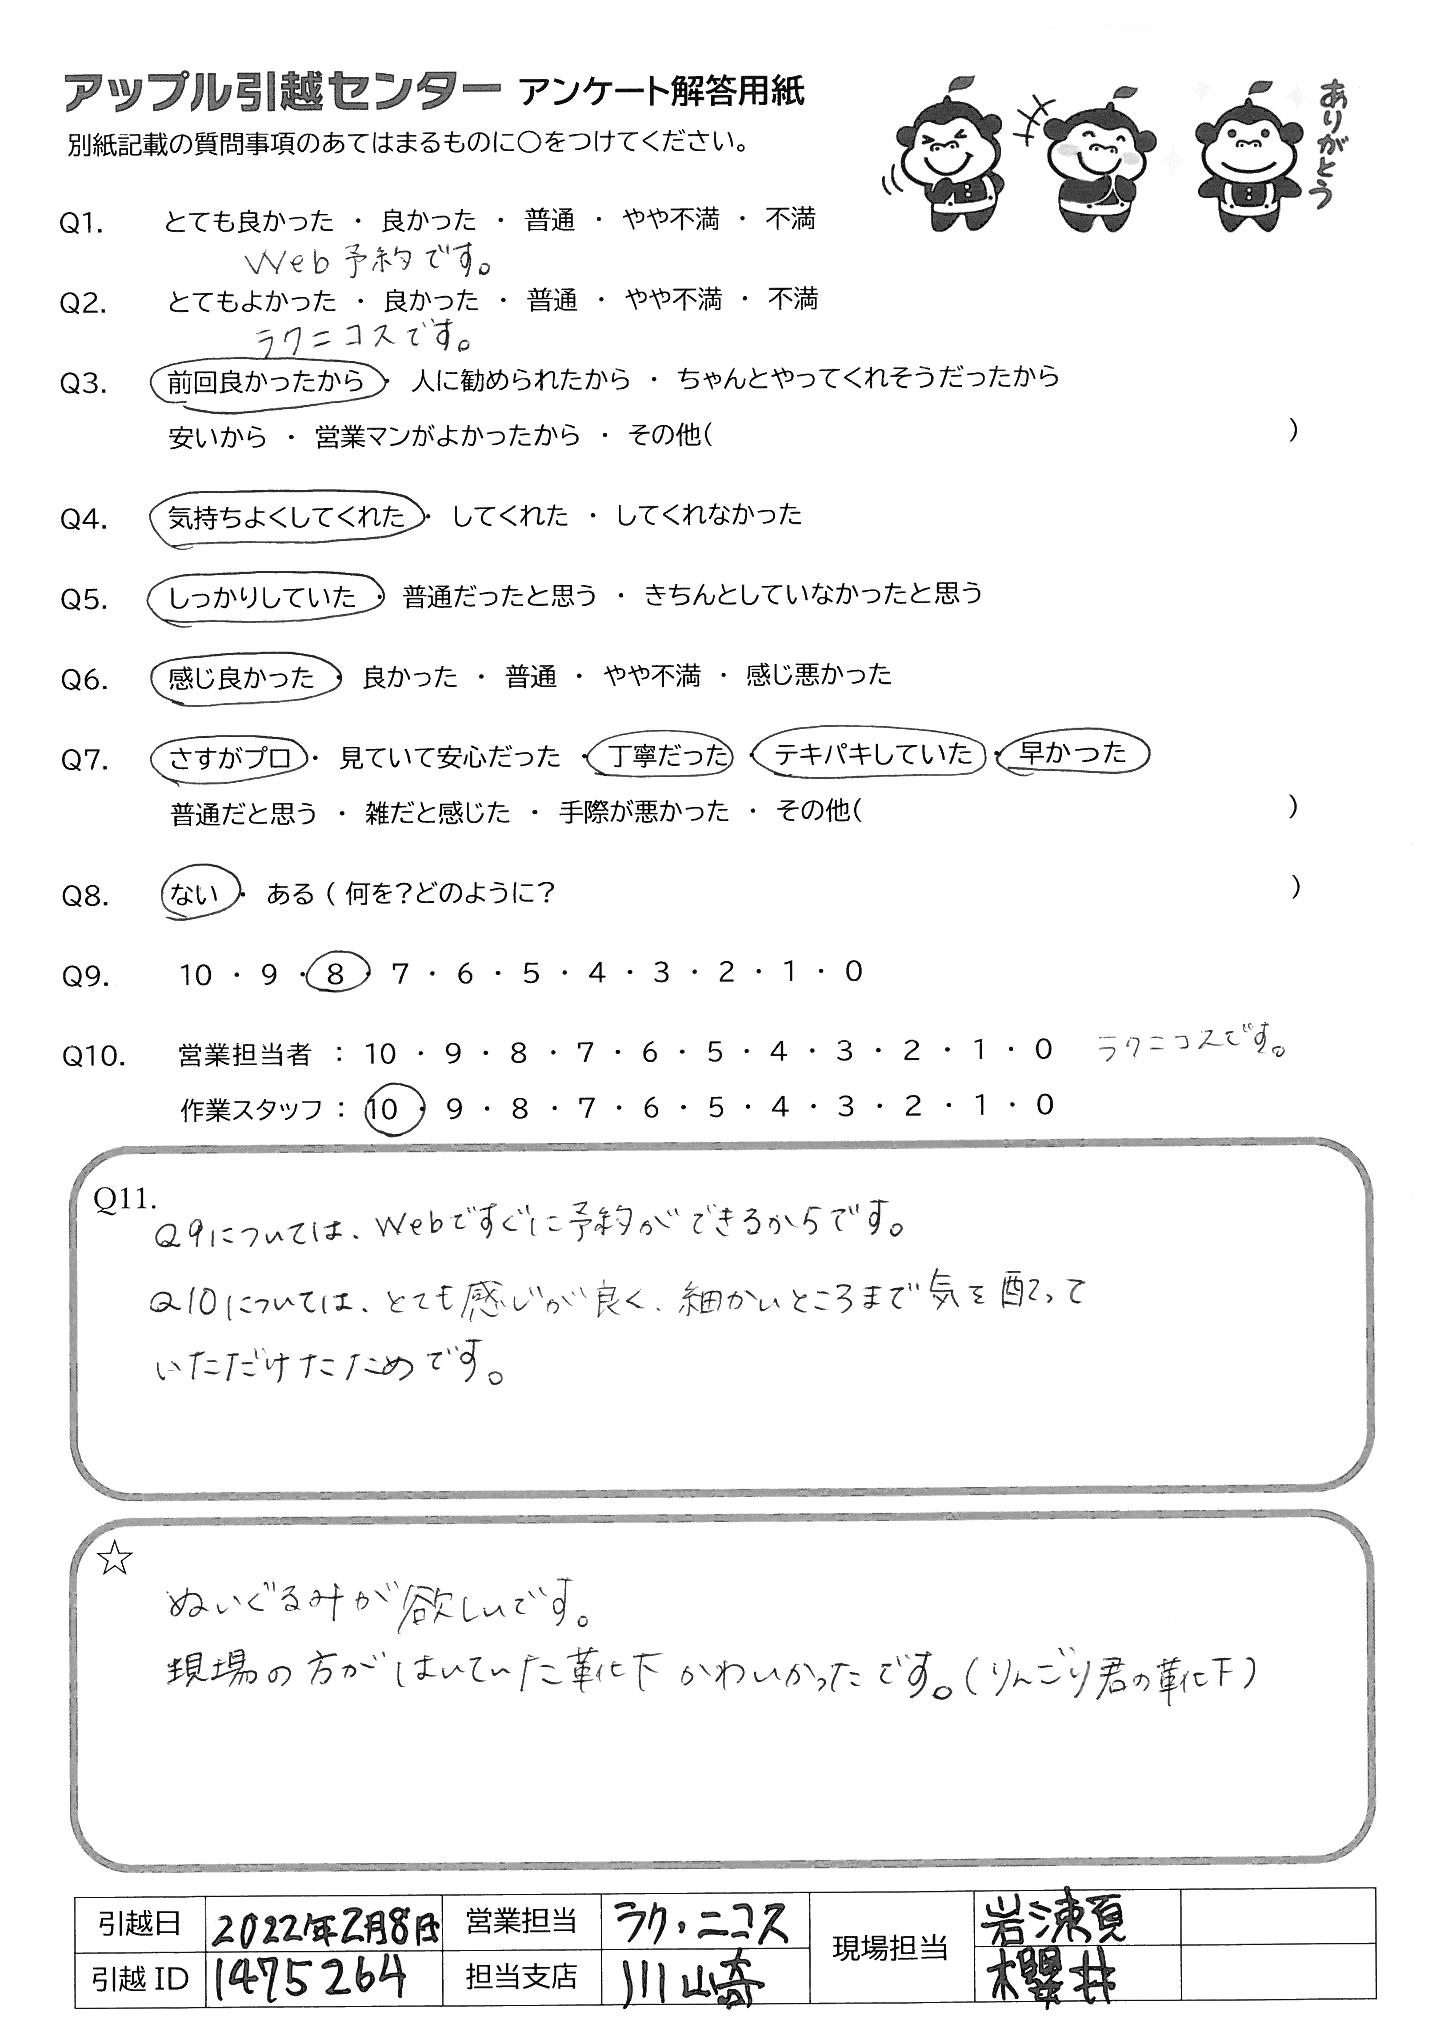 アップル引越センター アンケート解答用紙
ありがとう
別紙記載の質問事項のあてはまるものに○をつけてください。
Q1. とても良かった ・ 良かった ・ 普通 ・ やや不満 ・ 不満
Web予約です。
Q2. とてもよかった ・ 良かった ・ 普通 ・ やや不満 ・ 不満
ラクニコスです。
Q3. 前回良かったから ・ 人に勧められたから ・ ちゃんとやってくれそうだったから
安いから ・ 営業マンがよかったから ・ その他( )
Q4. 気持ちよくしてくれた ・ してくれた ・ してくれなかった
Q5. しっかりしていた ・ 普通だったと思う ・ きちんとしていなかったと思う
Q6. 感じ良かった ・ 良かった ・ 普通 ・ やや不満 ・ 感じ悪かった
Q7. さすがプロ ・ 見ていて安心だった ・ 丁寧だった ・ テキパキしていた ・ 早かった
普通だと思う ・ 雑だと感じた ・ 手際が悪かった ・ その他( )
Q8. ない ・ ある ( 何を？どのように？ )
Q9. 10 ・ 9 ・ 8 ・ 7 ・ 6 ・ 5 ・ 4 ・ 3 ・ 2 ・ 1 ・ 0
Q10. 営業担当者 ： 10 ・ 9 ・ 8 ・ 7 ・ 6 ・ 5 ・ 4 ・ 3 ・ 2 ・ 1 ・ 0 ラクニコスです。
作業スタッフ ： 10 ・ 9 ・ 8 ・ 7 ・ 6 ・ 5 ・ 4 ・ 3 ・ 2 ・ 1 ・ 0
Q11.
Q9については、Webですぐに予約ができるからです。
Q10については、とても感じが良く、細かいところまで気を配って
いただけたためです。
☆
ぬいぐるみが欲しいです。
現場の方がはいていた靴下かわいかったです。(りんごり君の靴下)
引越日 2022年2月8日 営業担当 ラク・ニコス 現場担当 岩瀬
引越ID 1475264 担当支店 川崎 櫻井